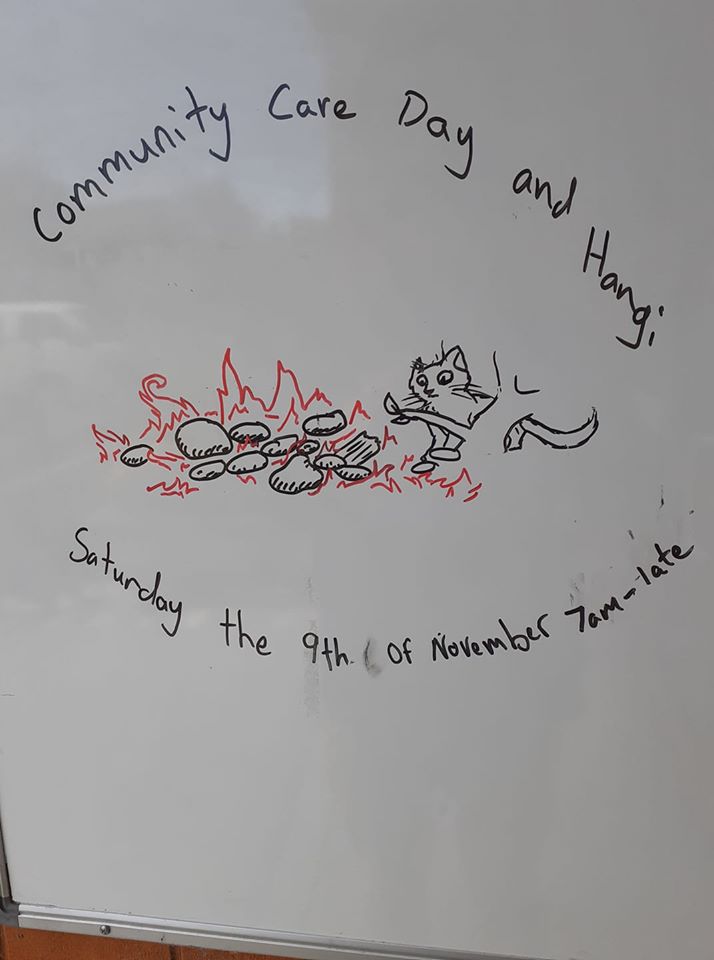 Community Care Day and Hangi
Saturday the 9th of November 7am-late